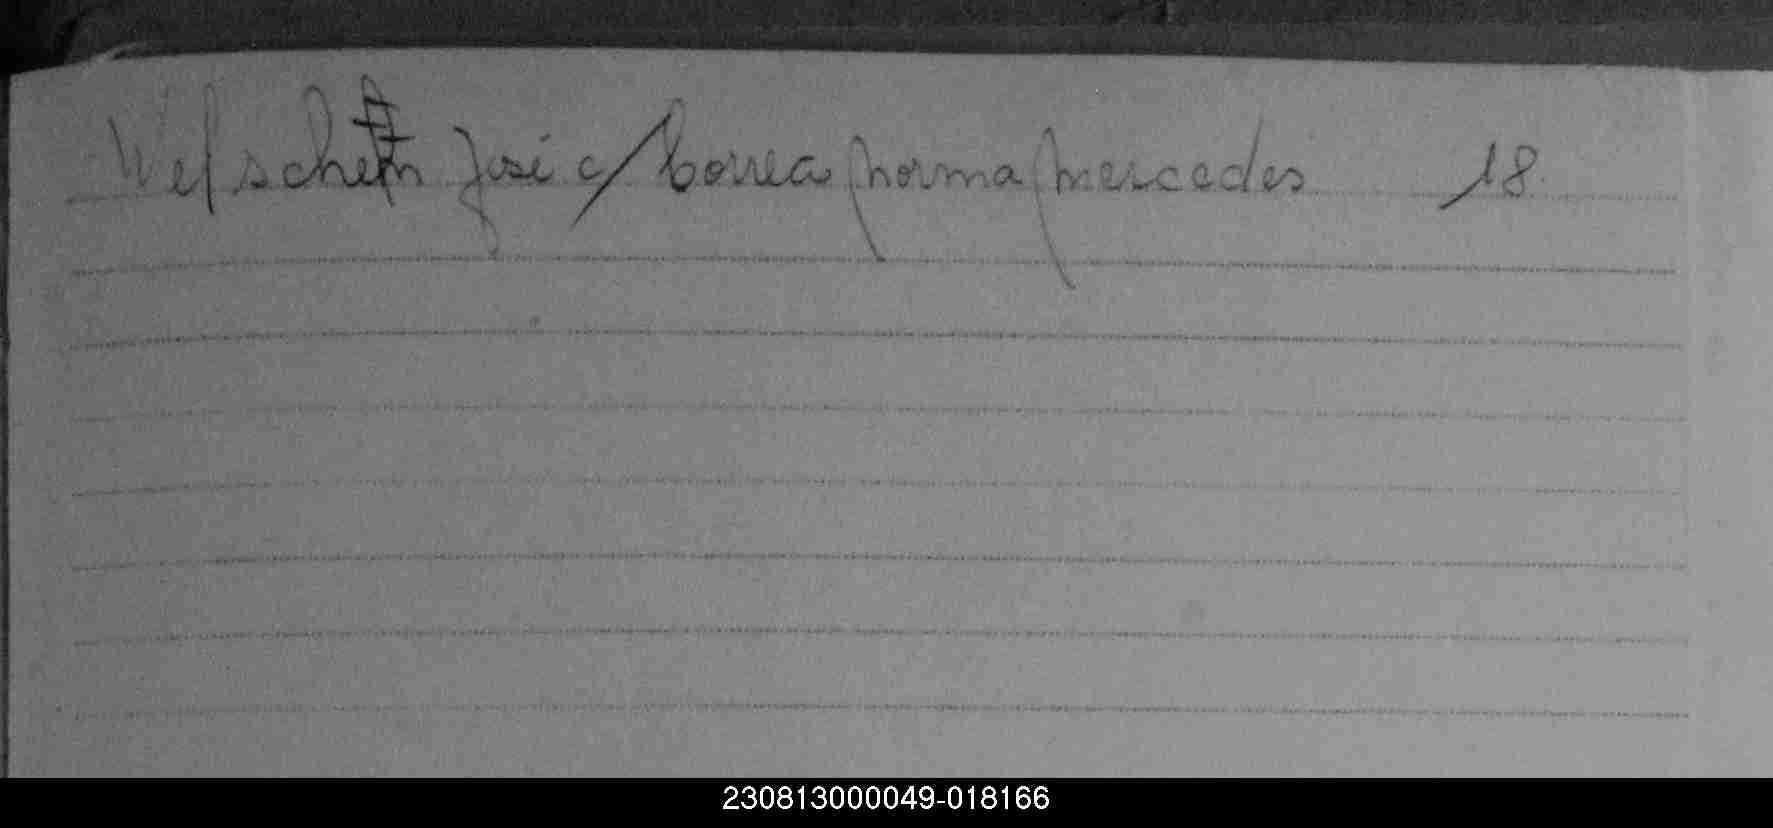 José c/ Correa Norma Mercedes 18
230813000049-018166